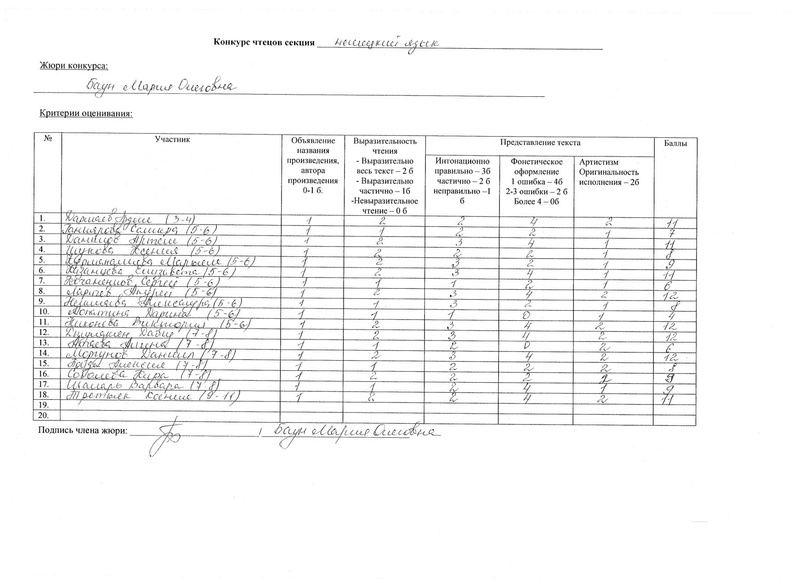 Конкурс чтецов секция немецкий язык
Жюри конкурса:
Баун Мария Олеговна
Критерии оценивания:
№ Участник Объявление названия произведения, автора произведения 0-1 б. Выразительность чтения - Выразительно весь текст – 2 б - Выразительно частично – 1б -Невыразительное чтение – 0 б Представление текста Баллы
Интонационно правильно – 3б частично – 2 б неправильно –1 б Фонетическое оформление 1 ошибка – 4б 2-3 ошибки – 2 б Более 4 – 0б Артистизм Оригинальность исполнения – 2б
1. (3-4) 1 2 2 4 2 11
2. (5-6) 1 1 2 2 1 7
3. Данилов Артём (5-6) 1 2 3 4 1 11
4. Ксения (5-6) 1 2 2 2 1 8
5. (5-6) 1 2 3 2 1 9
6. Елизавета (5-6) 1 2 3 4 1 11
7. Сергей (5-6) 1 1 1 2 1 6
8. Андрей (5-6) 1 2 3 4 2 12
9. (5-6) 1 1 3 2 1 8
10. Лопатина Дарина (5-6) 1 1 1 0 1 4
11. Виктория (5-6) 1 2 3 4 2 12
12. Давид (7-8) 1 2 3 4 2 12
13. (7-8) 1 1 2 0 2 6
14. Моргунов Даниил (7-8) 1 2 3 4 2 12
15. (7-8) 1 1 2 2 2 8
16. Соболева Кира (7-8) 1 2 2 9
17. Варвара (7-8) 1 1 2 4 1 9
18. Третьяк Ксения (9-11) 1 2 2 4 2 11
19.
20.
Подпись члена жюри: / Баун Мария Олеговна